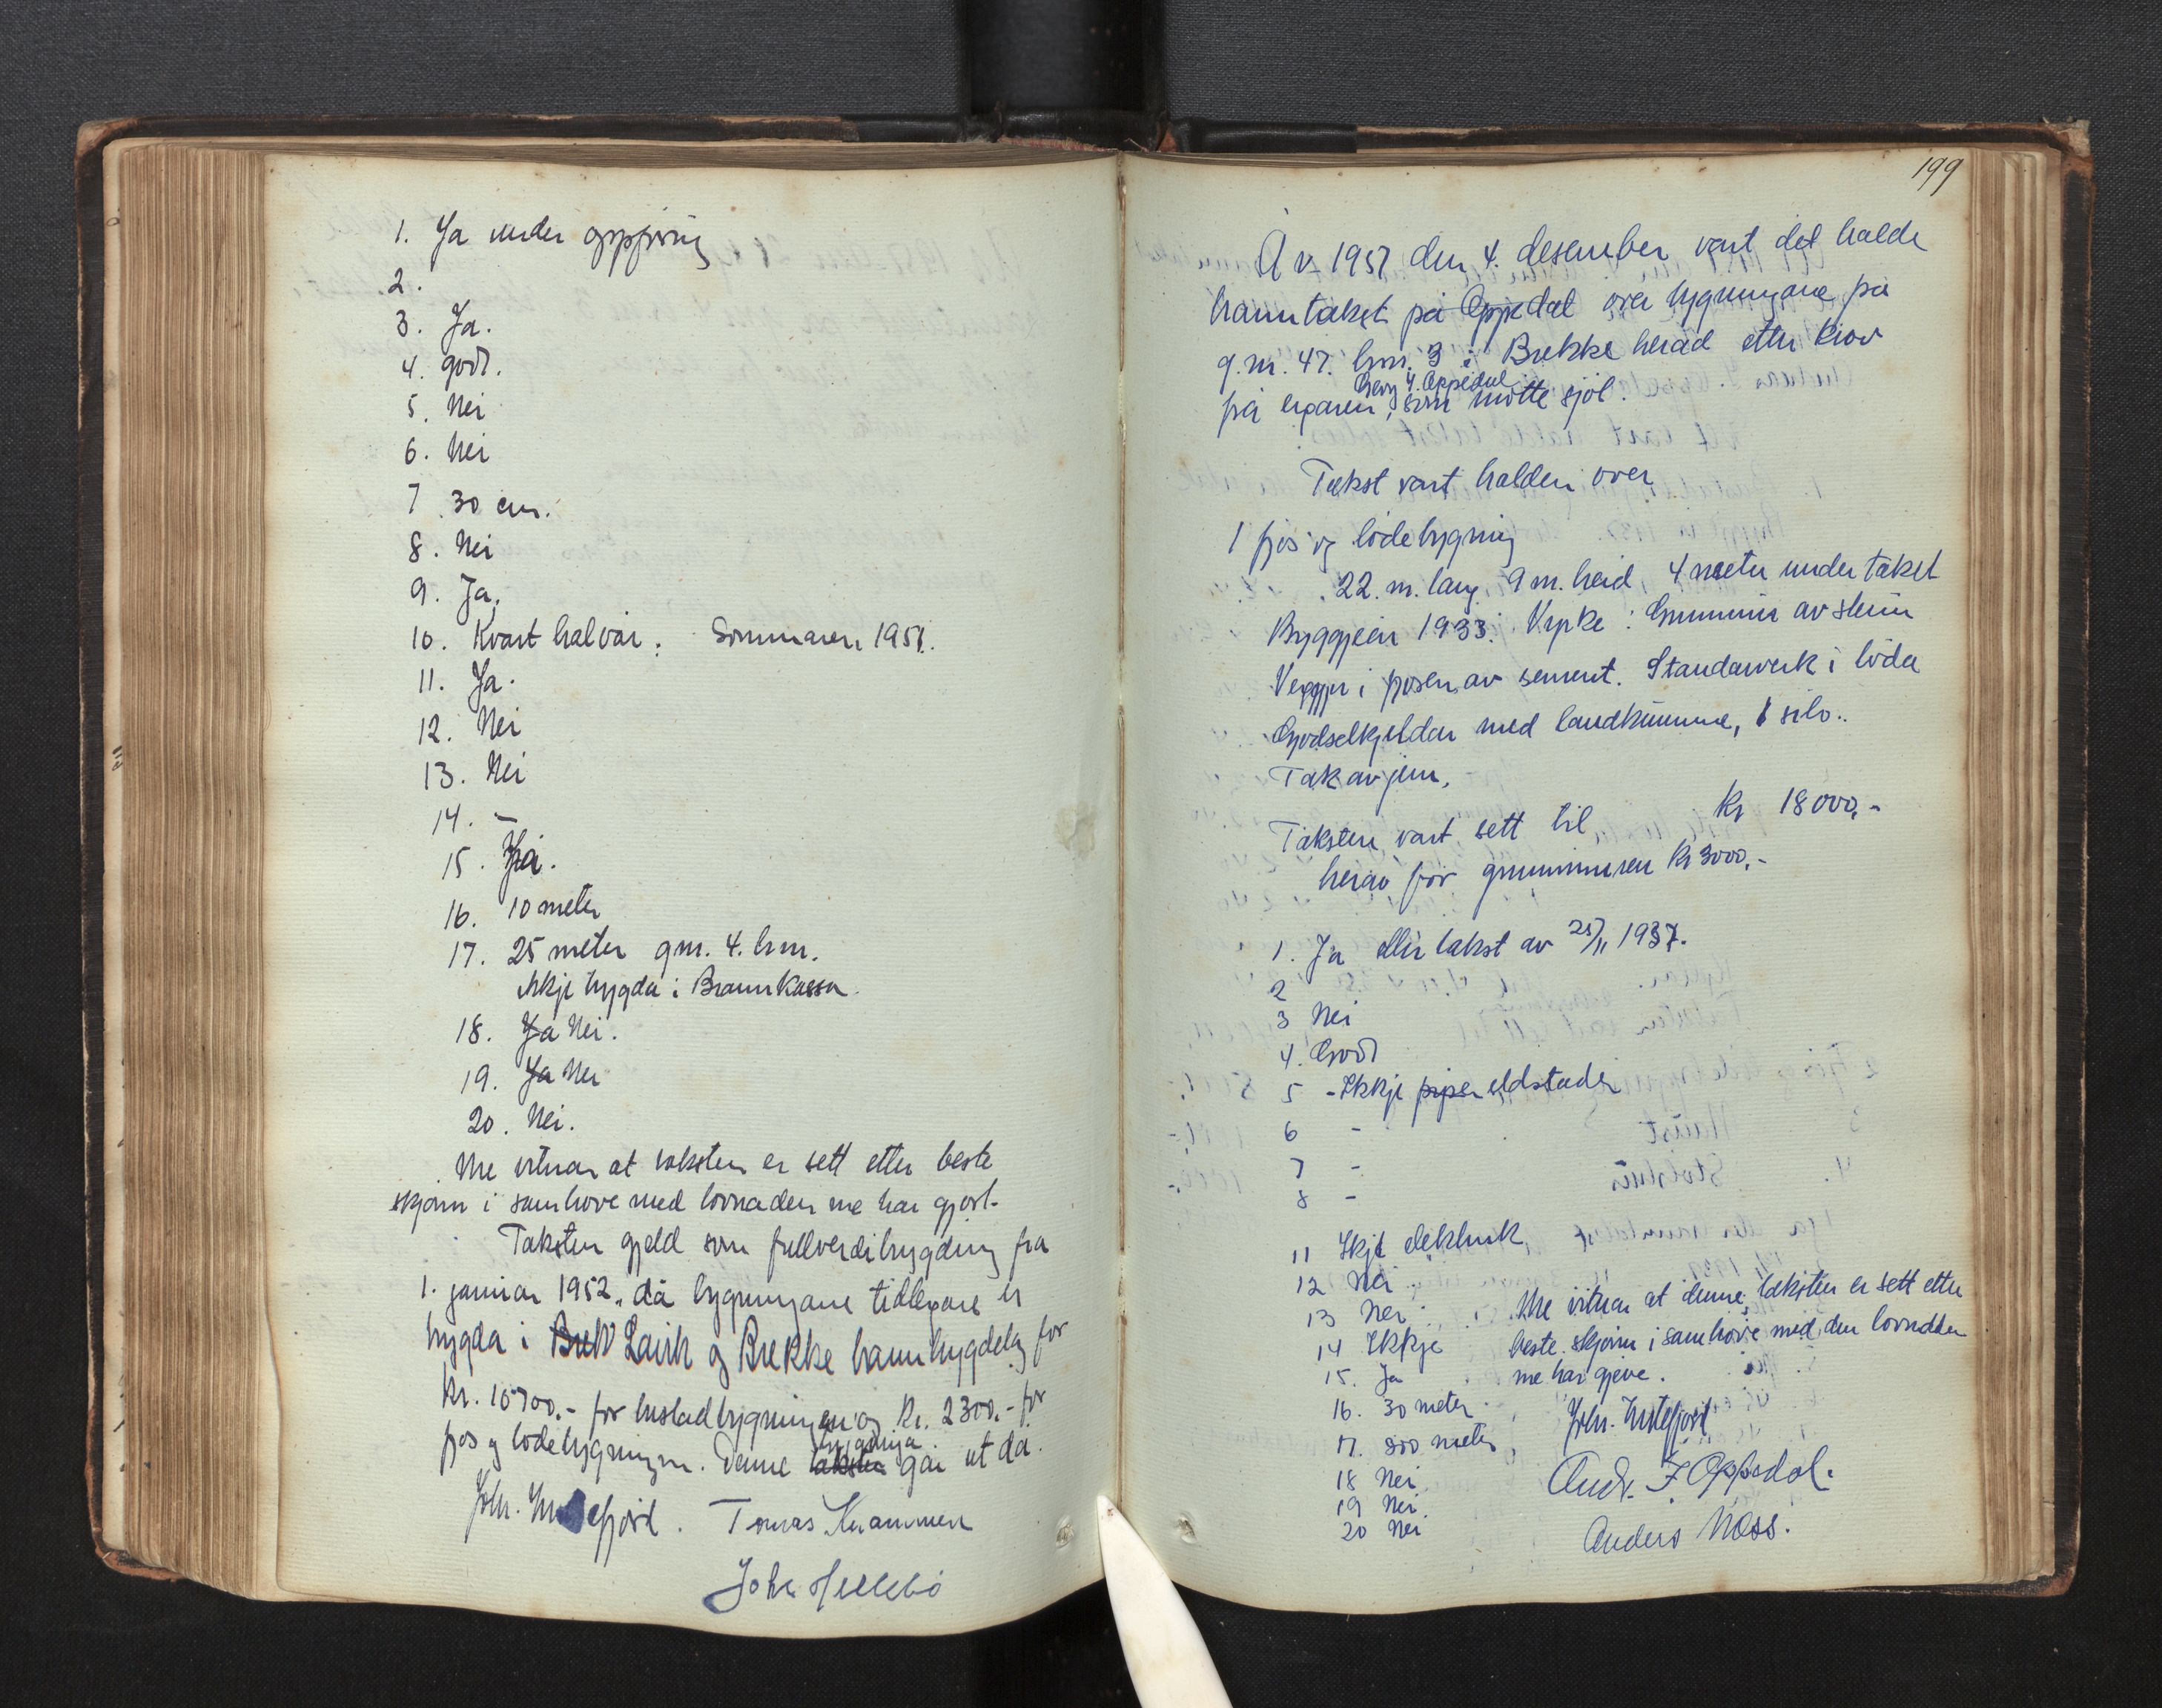 1. Ja under uppføring
2.
3. Ja.
4. godt.
5. Nei
6. Nei
7 30 cm.
8. Nei
9. Ja.
10. Kvart halvår. Sommaren 1951.
11. Ja.
12. Nei
13. Nei
14. –
15. Ja.
16. 10 meter
17. 25 meter gnr. 4. bnr.
Ikkje trygda i Brannkassa.
18. Ja Nei.
19. Ja Nei
20. Nei.
Me vitnar at taksten er sett etter beste
skjønn i samhøve med lovnaden me har gjort.
Taksten gjeld som fullverditrygding fra
1. januar 1952, då bygningane tidlegare er
trygda i Lavik og Brekke branntrygdelag for
kr. 10700.- for hustadbygningen og kr. 2300.- for
fjos og lødebygningen. Denne takster trygdinga går ut då.
Joh. Instefjord. Tomas Kvammen
Joh. Hellebø
199
År 1951 den 4. desember vart det halde
branntakst på Oppedal over bygningane på
g.nr. 47. bnr. 3 i Brekke herad etter krav
frå eigaren, som møtte sjøl.
Takst vart halden over
1 fjos og lødebygning
22. m. lang 9 m. breid, 4 meter under taket
Byggjeår 1933. Yrke: Grunnmur av stein
Veggjer i fjosen av sement. Standarverk i løda
Gjødselkjeldar med landkumme, 1 silo.
Tak av jern.
Taksten vart sett til kr 18000.-
herav for grunnmuren kr 3000.-
1. Ja eller takst av 25/11 1937.
2
3 Nei
4. God
5 – Ikkje piper eldstader
6 –
7 –
8 –
11 Ikkje elektrisk
12 Nei
13 Nei
14 Ikkje
15. Ja
16. 30 meter.
17. 800 meter
18 Nei
19 Nei
20 Nei
Me vitnar at denne taksten er sett etter
beste skjønn i samhøve med den lovnaden
me har gjeve.
Joh. Instefjord
Andr. J. Oppedal.
Anders Næss.